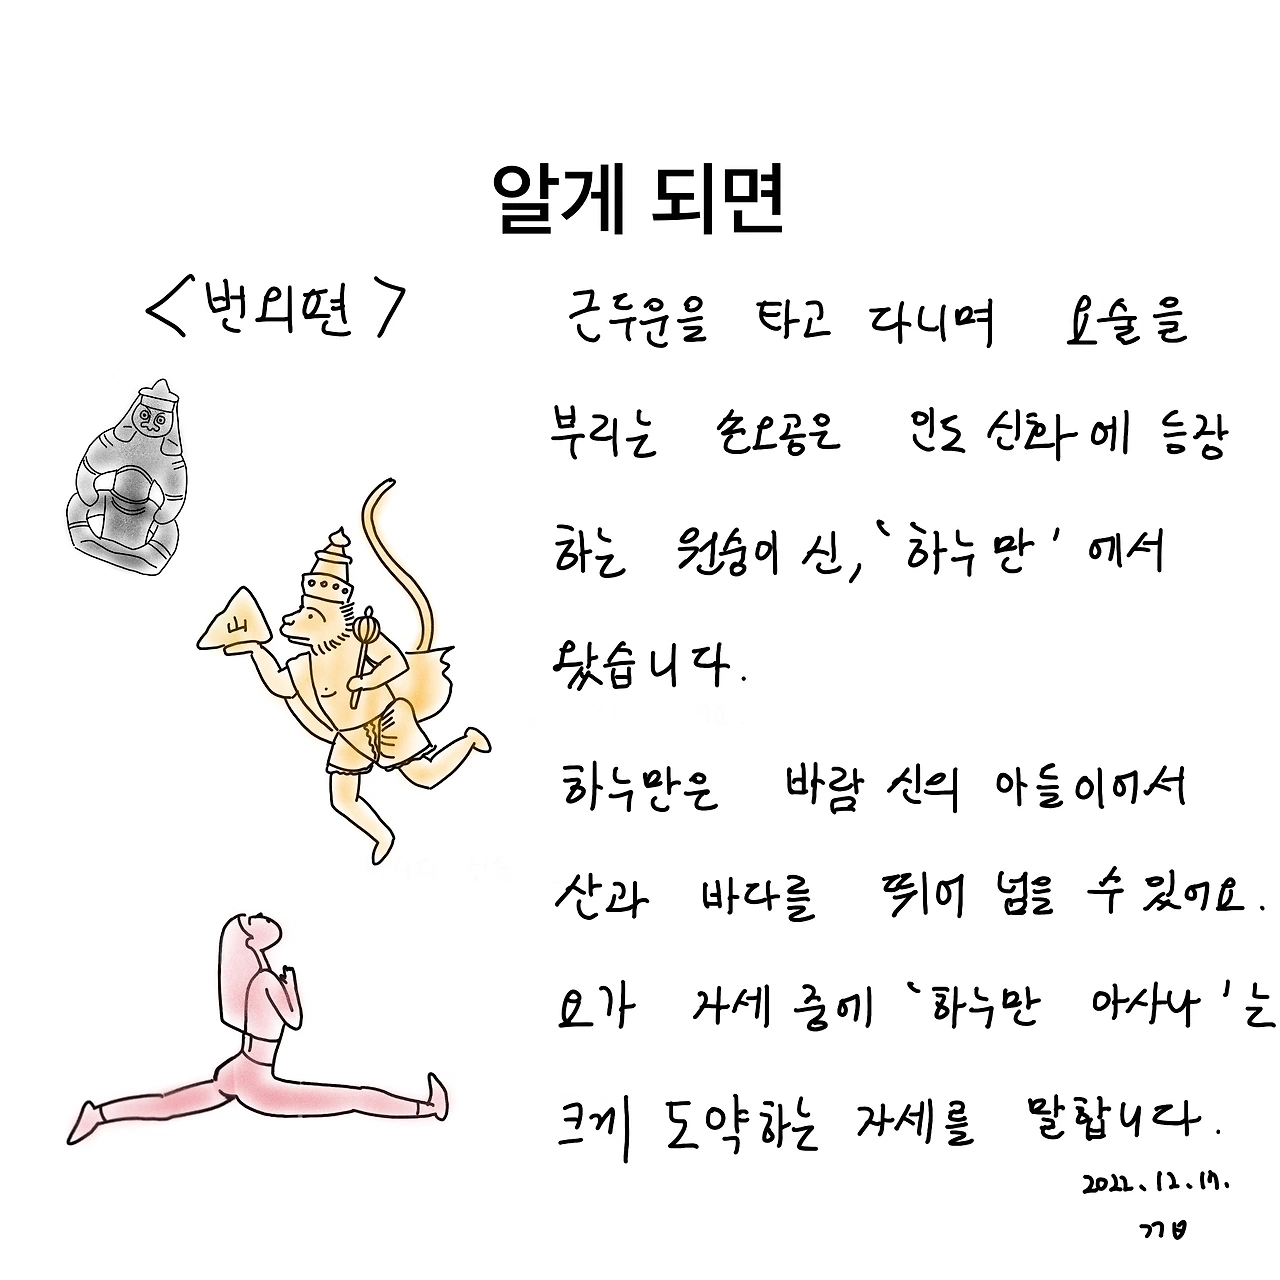 알게 되면
<번외편>
근두운을 타고 다니며 요술을
부리는 손오공은 인도 신화에 등장
하는 원숭이 신, '하누만' 에서
왔습니다.
山
하누만은 바람 신의 아들이어서
산과 바다를 뛰어 넘을 수 있어요.
요가 자세 중에 '하누만 아사나'는
크게 도약하는 자세를 말합니다.
2022.12.17.